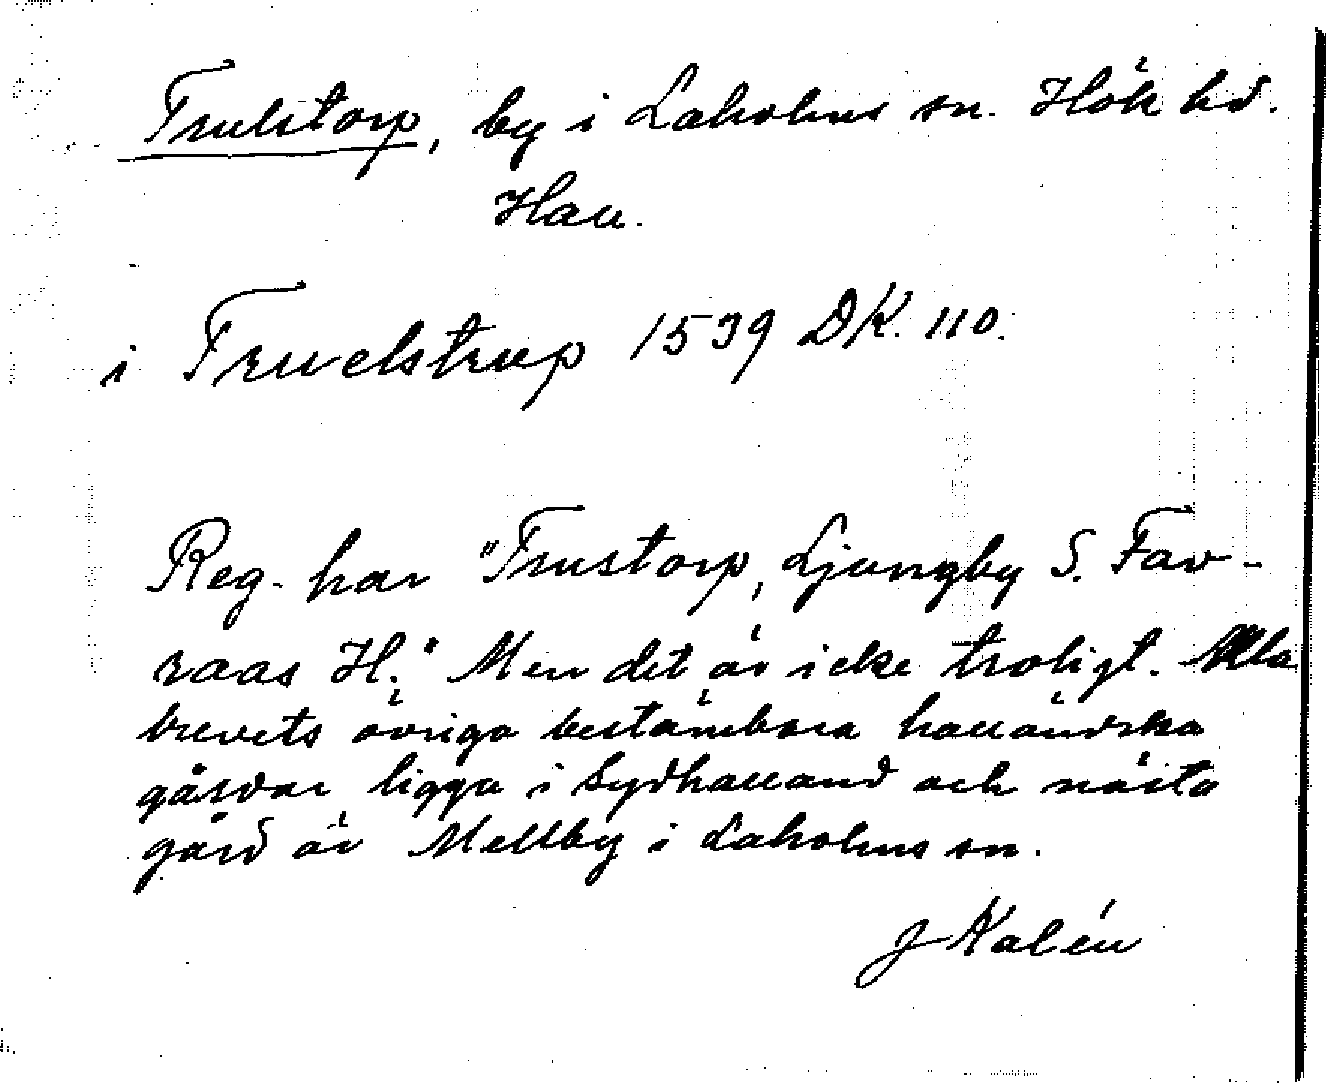 Trulstorp, by i Laholms sn. Hök hd.
Hall.
i Truelstrup 1539 DK. 110.
Reg. har "Trustorp, Ljungby S. Fav-
raas H." Men det är icke troligt. Alla
brevets övriga bestämbara halländska
gårdar ligga i Sydhalland och nästa
gård är Mellby i Laholms sn.
J Kalén